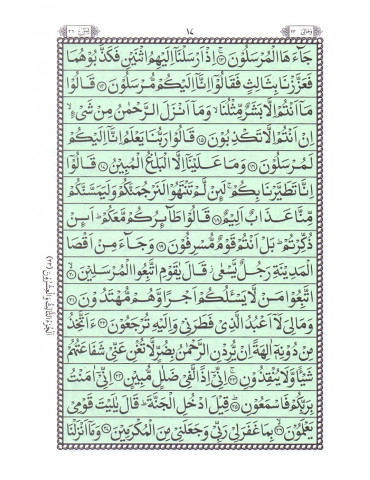 يٰسٓ ٣٦ ١٧ ومالی ٢٣
جَآءَهَا الْمُرْسَلُوْنَ ﴿١٣﴾ اِذْ اَرْسَلْنَآ اِلَيْهِمُ اثْنَيْنِ فَكَذَّبُوْهُمَا
فَعَزَّزْنَا بِثَالِثٍ فَقَالُوْٓا اِنَّآ اِلَيْكُمْ مُّرْسَلُوْنَ ﴿١٤﴾ قَالُوْا
مَآ اَنْتُمْ اِلَّا بَشَرٌ مِّثْلُنَا ۙ وَمَآ اَنْزَلَ الرَّحْمٰنُ مِنْ شَيْءٍ ۙ
اِنْ اَنْتُمْ اِلَّا تَكْذِبُوْنَ ﴿١٥﴾ قَالُوْا رَبُّنَا يَعْلَمُ اِنَّآ اِلَيْكُمْ
لَمُرْسَلُوْنَ ﴿١٦﴾ وَمَا عَلَيْنَآ اِلَّا الْبَلٰغُ الْمُبِيْنُ ﴿١٧﴾ قَالُوْٓا
اِنَّا تَطَيَّرْنَا بِكُمْ ۚ لَئِنْ لَّمْ تَنْتَهُوْا لَنَرْجُمَنَّكُمْ وَلَيَمَسَّنَّكُمْ
مِّنَّا عَذَابٌ اَلِيْمٌ ﴿١٨﴾ قَالُوْا طَآئِرُكُمْ مَّعَكُمْ ؕ اَئِنْ
ذُكِّرْتُمْ ؕ بَلْ اَنْتُمْ قَوْمٌ مُّسْرِفُوْنَ ﴿١٩﴾ وَجَآءَ مِنْ اَقْصَا
الْمَدِيْنَةِ رَجُلٌ يَّسْعٰى ۫ قَالَ يٰقَوْمِ اتَّبِعُوا الْمُرْسَلِيْنَ ﴿٢٠﴾
اتَّبِعُوْا مَنْ لَّا يَسْئَلُكُمْ اَجْرًا وَّهُمْ مُّهْتَدُوْنَ ﴿٢١﴾
وَمَا لِيَ لَآ اَعْبُدُ الَّذِيْ فَطَرَنِيْ وَاِلَيْهِ تُرْجَعُوْنَ ﴿٢٢﴾ ءَاَتَّخِذُ
مِنْ دُوْنِهٖٓ اٰلِهَةً اِنْ يُّرِدْنِ الرَّحْمٰنُ بِضُرٍّ لَّا تُغْنِ عَنِّيْ شَفَاعَتُهُمْ
شَيْئًا وَّلَا يُنْقِذُوْنِ ﴿٢٣﴾ اِنِّيْٓ اِذًا لَّفِيْ ضَلٰلٍ مُّبِيْنٍ ﴿٢٤﴾ اِنِّيْٓ اٰمَنْتُ
بِرَبِّكُمْ فَاسْمَعُوْنِ ﴿٢٥﴾ قِيْلَ ادْخُلِ الْجَنَّةَ ؕ قَالَ يٰلَيْتَ قَوْمِيْ
يَعْلَمُوْنَ ﴿٢٦﴾ بِمَا غَفَرَ لِيْ رَبِّيْ وَجَعَلَنِيْ مِنَ الْمُكْرَمِيْنَ ﴿٢٧﴾ وَمَآ اَنْزَلْنَا